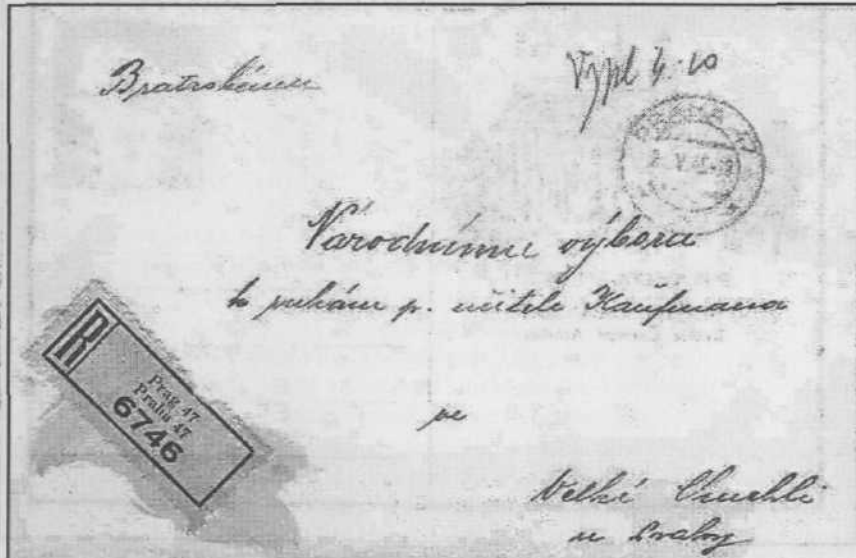 Bratrskému
Vypl 4.20
PRAHA 47
V.45
Národnímu výboru
k rukám p. učitele Kaufmana
ve
Velké Chuchli
u Prahy
R
Prag 47
Praha 47
6746